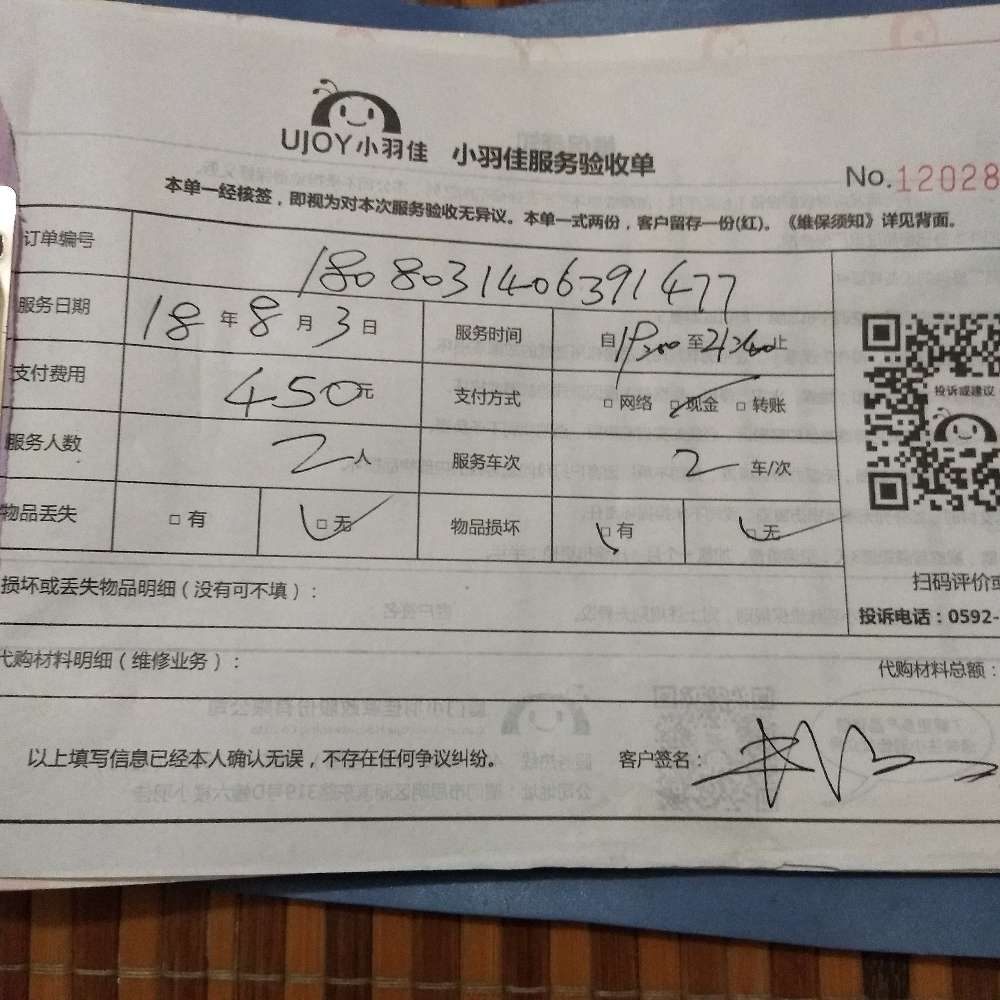 UJOY小羽佳 小羽佳服务验收单
No.12028
本单一经核签，即视为对本次服务验收无异议。本单一式两份，客户留存一份(红)。《维保须知》详见背面。
订单编号 1808031406391477
服务日期 18年8月3日 服务时间 自 至 止
支付费用 450元 支付方式 □网络 □现金 □转账
服务人数 2人 服务车次 2 车/次
物品丢失 □有 □无 物品损坏 □有 □无
投诉或建议
扫码评价或
投诉电话：0592-
损坏或丢失物品明细（没有可不填）：
代购材料明细（维修业务）： 代购材料总额：
以上填写信息已经本人确认无误，不存在任何争议纠纷。 客户签名：